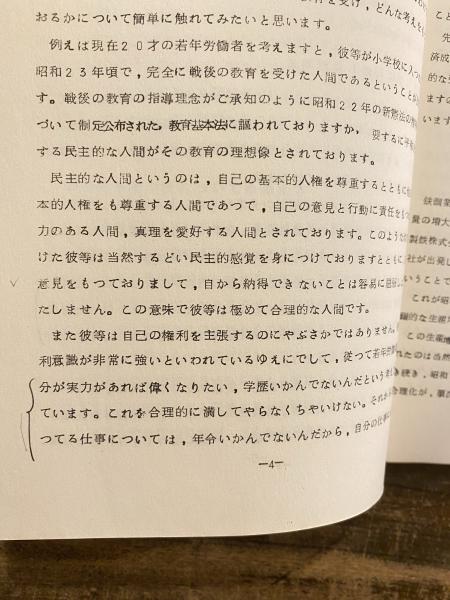 教育を受け，どんな考えを
おるかについて簡単に触れてみたいと思います。
例えば現在２０才の若年労働者を考えますと，彼等が小学校に入つ
昭和２３年頃で，完全に戦後の教育を受けた人間であるということが
す。戦後の教育の指導理念がご承知のように昭和２２年の新憲法の
づいて制定公布された，教育基本法に謳われておりますか，要するに平和
する民主的な人間がその教育の理想像とされております。
民主的な人間というのは，自己の基本的人権を尊重するとともに他
本的人権をも尊重する人間であつて，自己の意見と行動に責任を
力のある人間，真理を愛好する人間とされております。このような
けた彼等は当然するどい民主的感覚を身につけておりますとともに
意見をもつておりまして，自から納得できないことは容易に
たしません。この意味で彼等は極めて合理的な人間です。
また彼等は自己の権利を主張するのにやぶさかではありません。
利意識が非常に強いといわれているゆえにでして，従つて若年労働
分が実力があれば偉くなりたい，学歴いかんでないんだという考え
ています。これを合理的に満してやらなくちやいけない。それか
つてる仕事については，年令いかんでないんだから，自分の仕事に
—4—
こと
先
済成
的な
ますの
います
鉄鋼業
量の増大
製鉄株式
社が出発し
いうことで
これが昭
的な生産
この生産
れたのは当然
続き，昭和
合理化が，